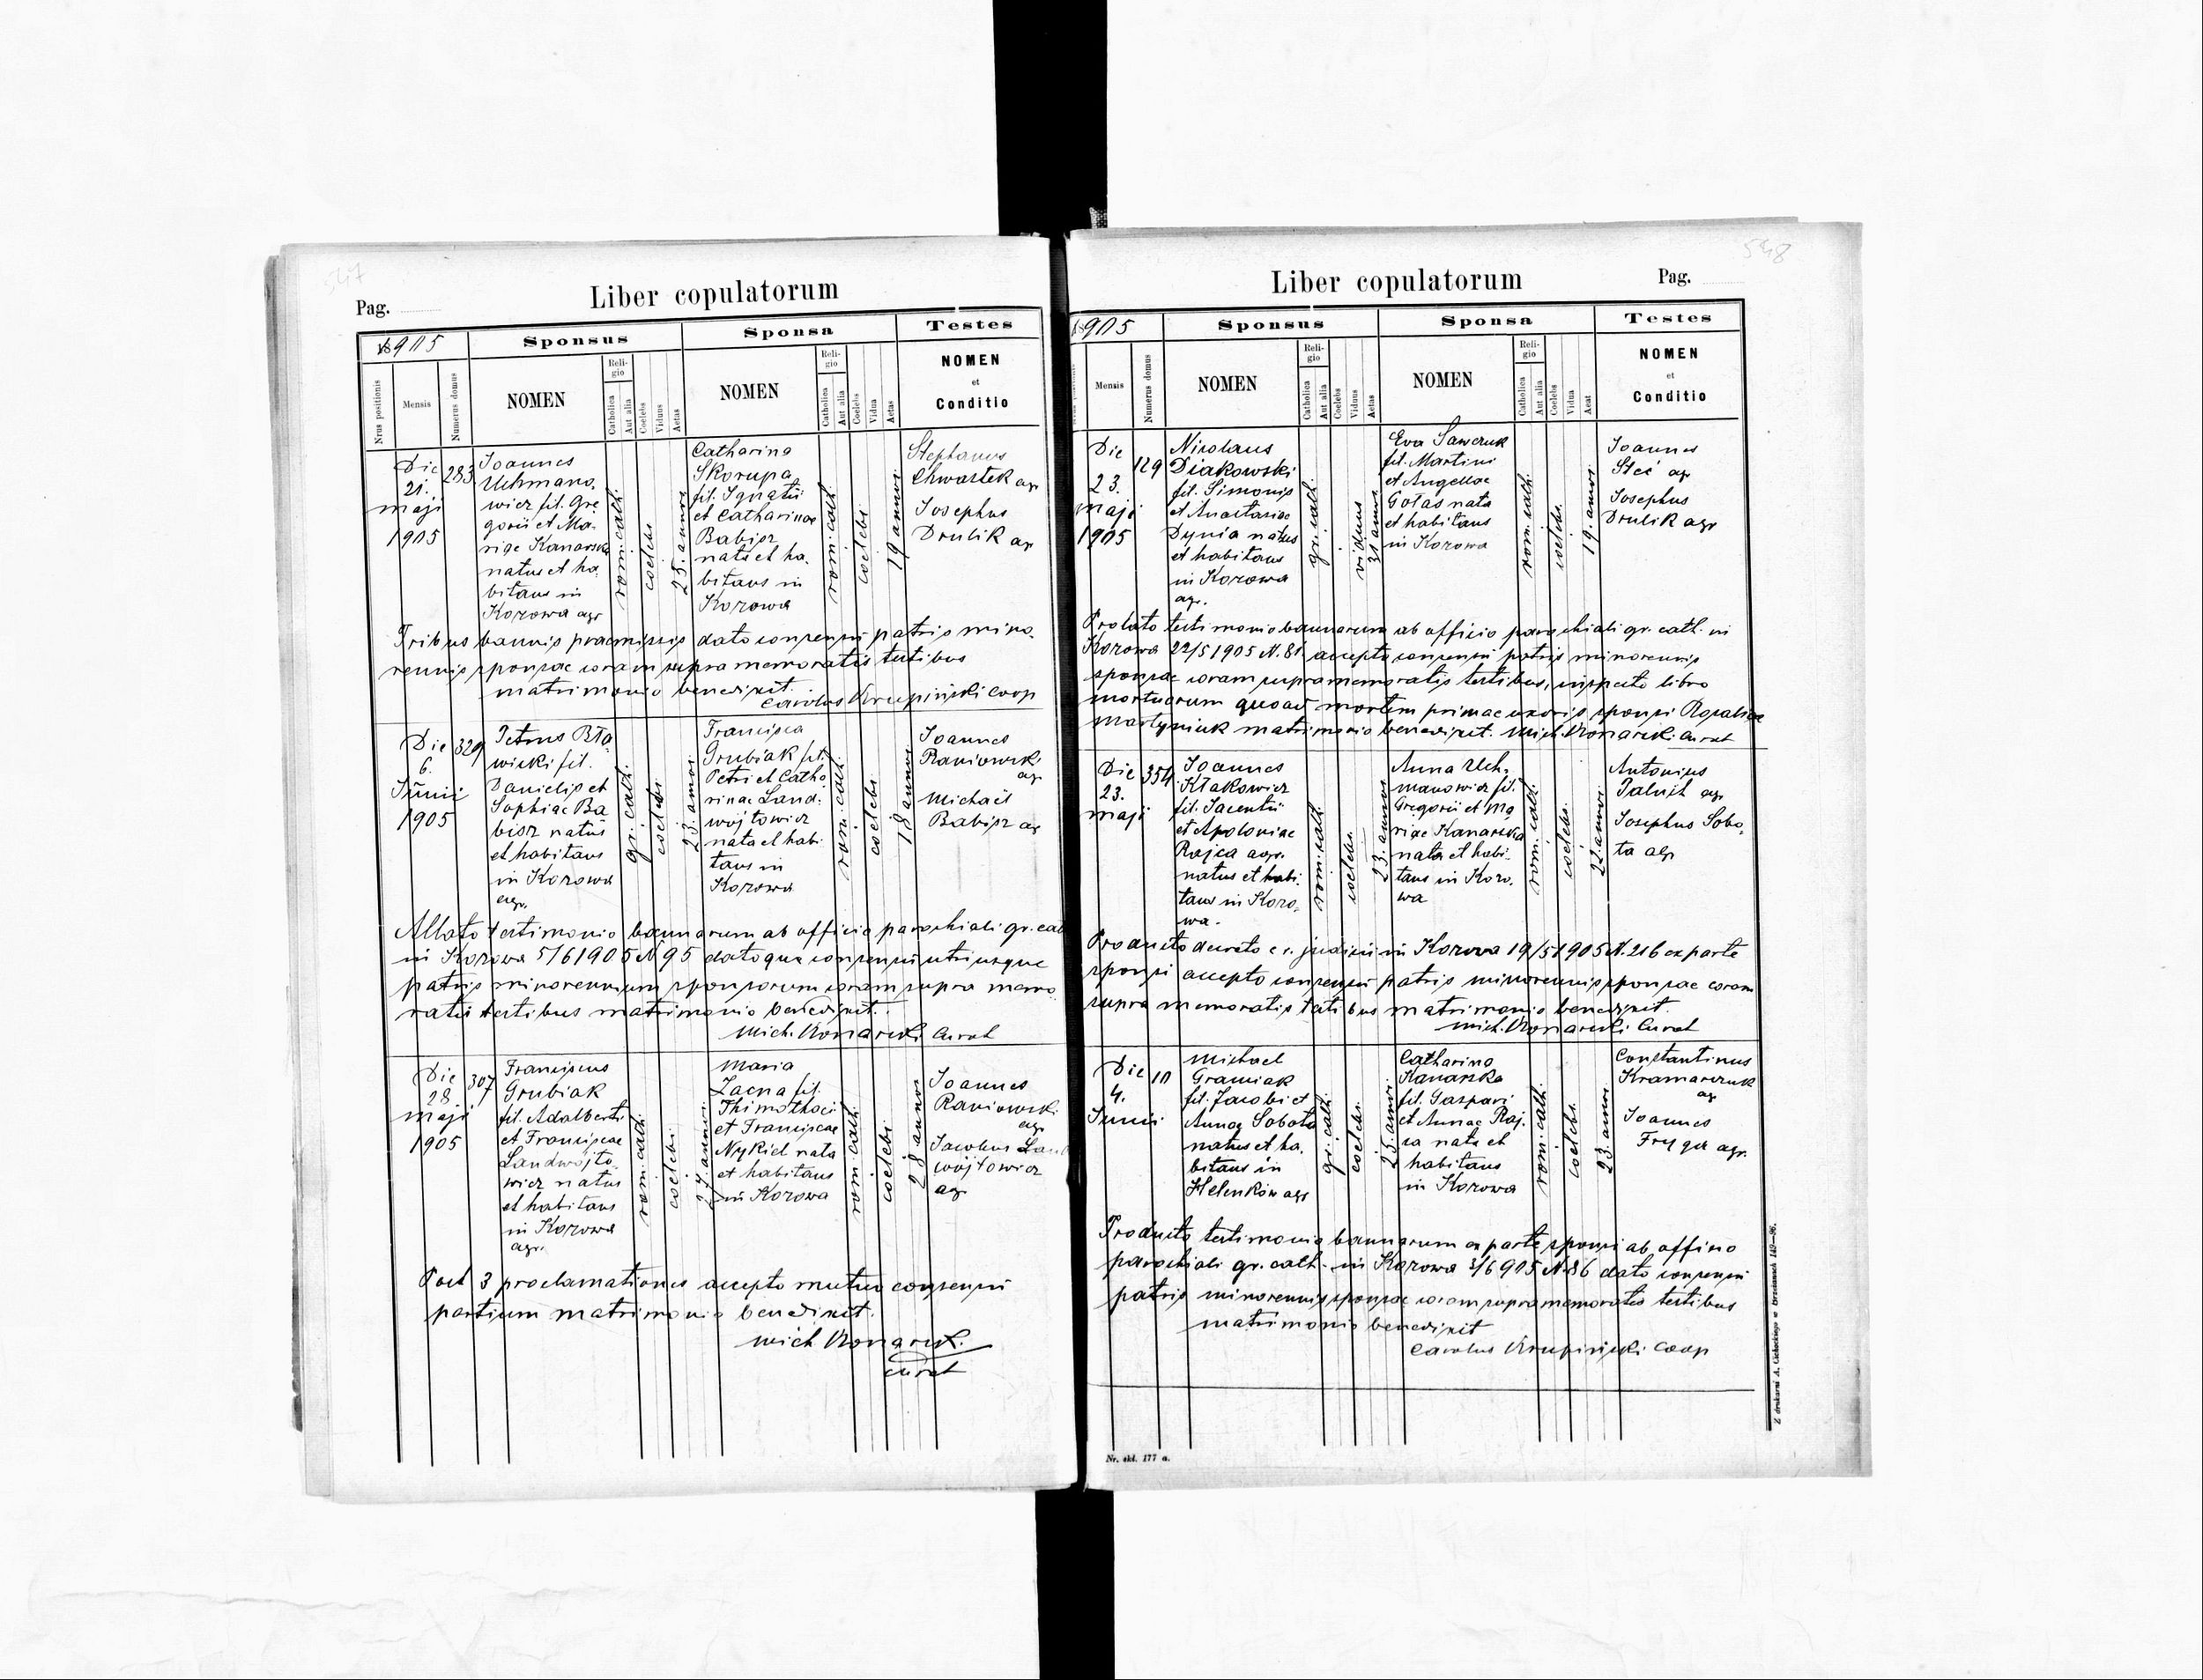 547
Pag.
Liber copulatorum
1905
Sponsus
Sponsa
Testes
Nrus positionis
Mensis
Numerus domus
NOMEN
Religio
Catholica
Aut alia
Coelebs
Viduus
Aetas
NOMEN
Religio
Catholica
Aut alia
Coelebs
Vidua
Aetas
NOMEN
et
Conditio
Die
21.
maji
1905
283
Joannes
Uchmano-
wicz fil. Gre
gorii et Ma-
riae Kanarska
natus et ha-
bitans in
Korowa agr
rom. cath.
coelebs
25. annor.
Catharina
Skorupa
fil. Ignatii
et Catharinae
Babisz
nata et ha-
bitans in
Korowa
rom. cath.
coelebs
19 annor.
Stephanus
Chwastek agr
Josephus
Drulik agr
Tribus bannis praemissis dato consensu patris mino-
rennis sponsae coram supra memoratis testibus
matrimonio benedixit.
Carolus Krupiński coop
Die
6.
Junii
1905
329
Petrus
wicki fil.
Danielis et
Sophiae Ba
bisz natus
et habitans
in Korowa
agr.
gr. cath.
coelebs
23. annor.
Francisca
Grubiak fil.
Petri et Catha
rinae Land-
wojtowicz
nata et habi-
tans in
Korowa
rom. cath.
coelebs
18 annor.
Joannes
Raniowski
agr
Michaël
Babisz agr
Allato testimonio bannorum ab officio parochiali gr. cath
in Korowa 5/6 1905 N 95 datoque consensu utriusque
patris minorennium sponsorum coram supra memo
ratis testibus matrimonio benedixit.
Mich. Konarski Curat
Die
28
maji
1905
307
Franciscus
Grubiak
fil. Adalberti
et Franciscae
Landwojto-
wicz natus
et habitans
in Korowa
agr.
rom. cath.
coelebs
24 annor.
Maria
Zacna fil.
Thimothei
et Franciscae
Nykiel nata
et habitans
in Korowa
rom. cath.
coelebs
28 annor
Joannes
Raniowski
agr
Jacobus Land
wojtowicz
agr
Post 3 proclamationes accepto mutuo consensu
partium matrimonio benedixit.
Mich Konarski
curat
548
Liber copulatorum
Pag.
1905
Sponsus
Sponsa
Testes
Mensis
Numerus domus
NOMEN
Religio
Catholica
Aut alia
Coelebs
Viduus
Aetas
NOMEN
Religio
Catholica
Aut alia
Coelebs
Vidua
Aeat
NOMEN
et
Conditio
Die
23.
maji
1905
129
Nicolaus
Diakowski
fil. Simonis
et Anastasiae
Dynia natus
et habitans
in Korowa
agr.
gr. cath.
viduus
31 annor
Eva Sawczuk
fil. Martini
et Angellae
Gołas nata
et habitans
in Korowa
rom. cath.
coelebs.
19. annor.
Joannes
Steć agr
Josephus
Drulik agr
Prolato testimonio bannorum ab officio parochiali gr. cath. in
Korowa 22/5 1905 N. 81. accepto consensu patris minorennis
sponsae coram supra memoratis testibus, inspecto libro
mortuorum quoad mortem primae uxoris sponsi Rosaliae
Martyniuk matrimonio benedixit. Mich. Konarski Curat
Die
23.
maji
354
Joannes
Kłakowicz
fil. Jacentii
et Apoloniae
Rajca agr.
natus et habi-
tans in Koro-
wa.
rom. cath.
coelebs.
23. annor
Anna Uch-
manowicz fil.
Gregorii et Ma
riae Kanarska
nata et habi-
tans in Koro-
wa
rom. cath.
coelebs.
22. annor.
Antonius
Paluch agr
Josephus Sobo-
ta agr
Producto decreto c. r. judicii in Korowa 19/5 1905 N. 216 ex parte
sponsi accepto consensu patris minorennis sponsae coram
supra memoratis testibus matrimonio benedixit.
Mich. Konarski Curat
Die
4.
Junii
10
Michael
Graniak
fil. Jacobi et
Annae Sobota
natus et ha-
bitans in
Helenków agr
gr. cath.
coelebs.
25. annor.
Catharina
Kanarska
fil. Gaspari
et Annae Raj-
ca nata et
habitans
in Korowa
rom. cath.
coelebs.
23. annor.
Constantinus
Kramarczuk
agr
Joannes
Fryga agr.
Producto testimonio bannorum ex parte sponsi ab officio
parochiali gr. cath. in Korowa 3/6 905 N. 86 dato consensu
patris minorennis sponsae coram supra memoratis testibus
matrimonio benedixit
Carolus Krupiński coop
Z drukarni A. Cichockiego w Brzeżanach 149—96.
Nr. skł. 177 a.